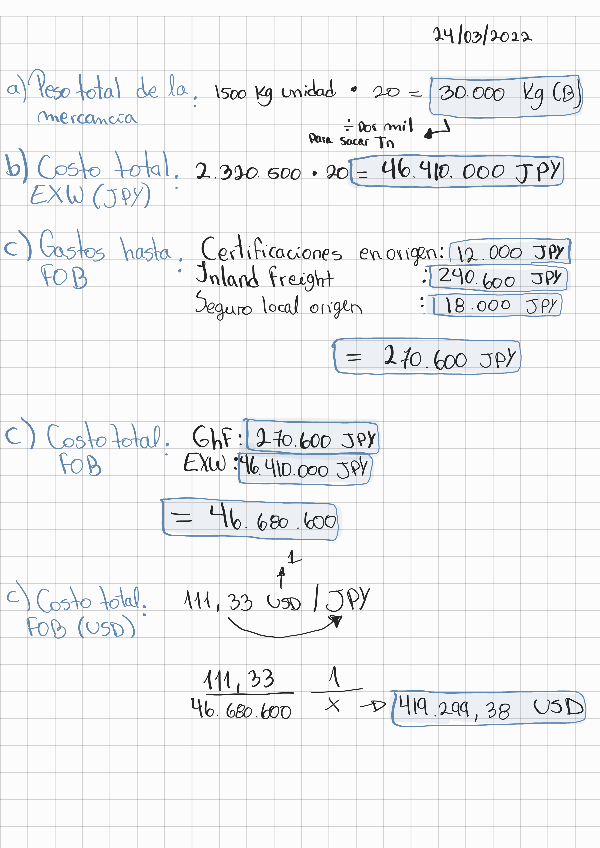 24/03/2022
a) Peso total de la : 1500 Kg unidad • 20 = 30.000 Kg (B)
mercancia
÷ Dos mil
Para sacar Tn
b) Costo total : 2.320.500 • 20 = 46.410.000 JPY
EXW (JPY)
c) Gastos hasta : Certificaciones en origen: 12.000 JPY
FOB Inland freight : 240.600 JPY
Seguro local origen : 18.000 JPY
= 270.600 JPY
c) Costo total : GhF: 270.600 JPY
FOB EXW: 46.410.000 JPY
= 46.680.600
1
c) Costo total : 111,33 USD / JPY
FOB (USD)
111,33 1
46.680.600 X → 419.299,38 USD